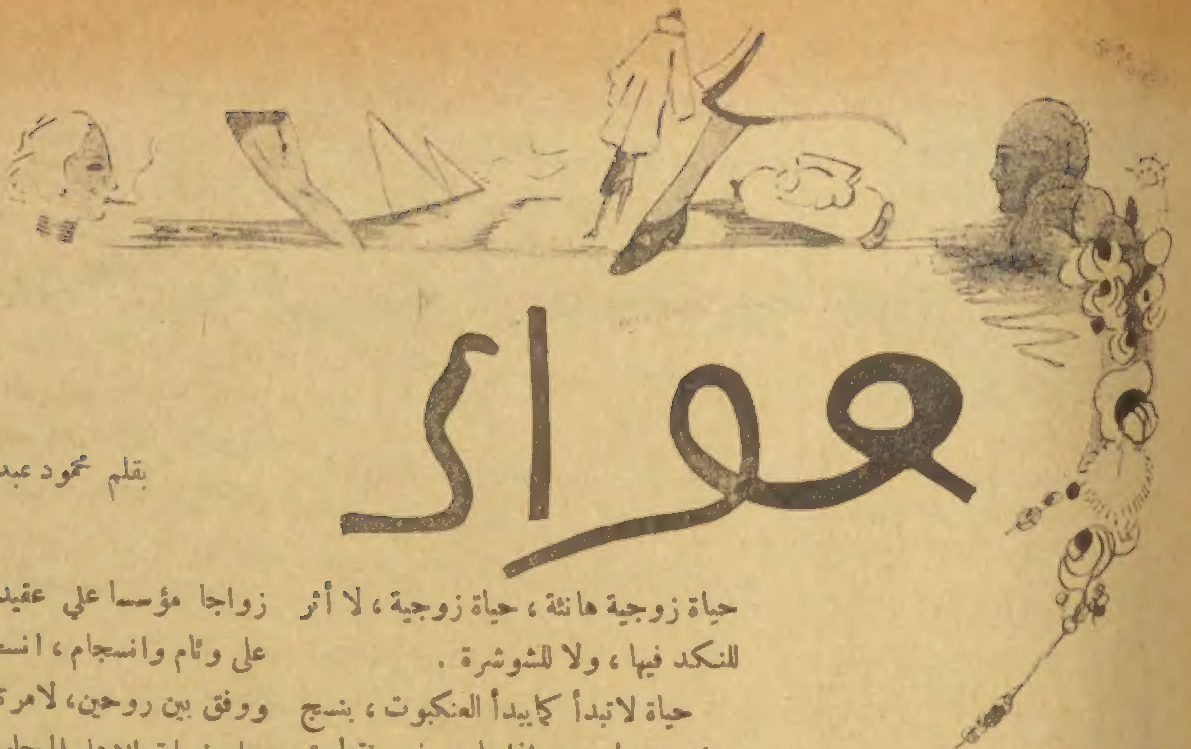 هواك
بقلم محمود عبد
حياة زوجية هانئة ، حياة زوجية ، لا أثر
للنكد فيها ، ولا للشوشرة .
حياة لاتبدأ كما يبدأ العنكبوت ، بنسج
زواجا مؤسسا علي عقيد
على وئام وانسجام ، انسـ
ووفق بين روحين، لامرة